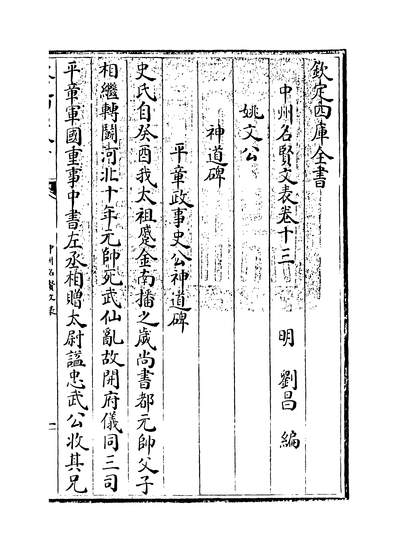 欽定四庫全書
中州名賢文表卷十三
明 劉昌 編
姚文公
神道碑
平章政事史公神道碑
史氏自癸酉我太祖蹙金南播之歲尚書都元帥父子
相繼轉鬬河北十年元帥死武仙亂故開府儀同三司
平章軍國重事中書左丞相贈太尉諡忠武公收其兄
中州名賢文表
一